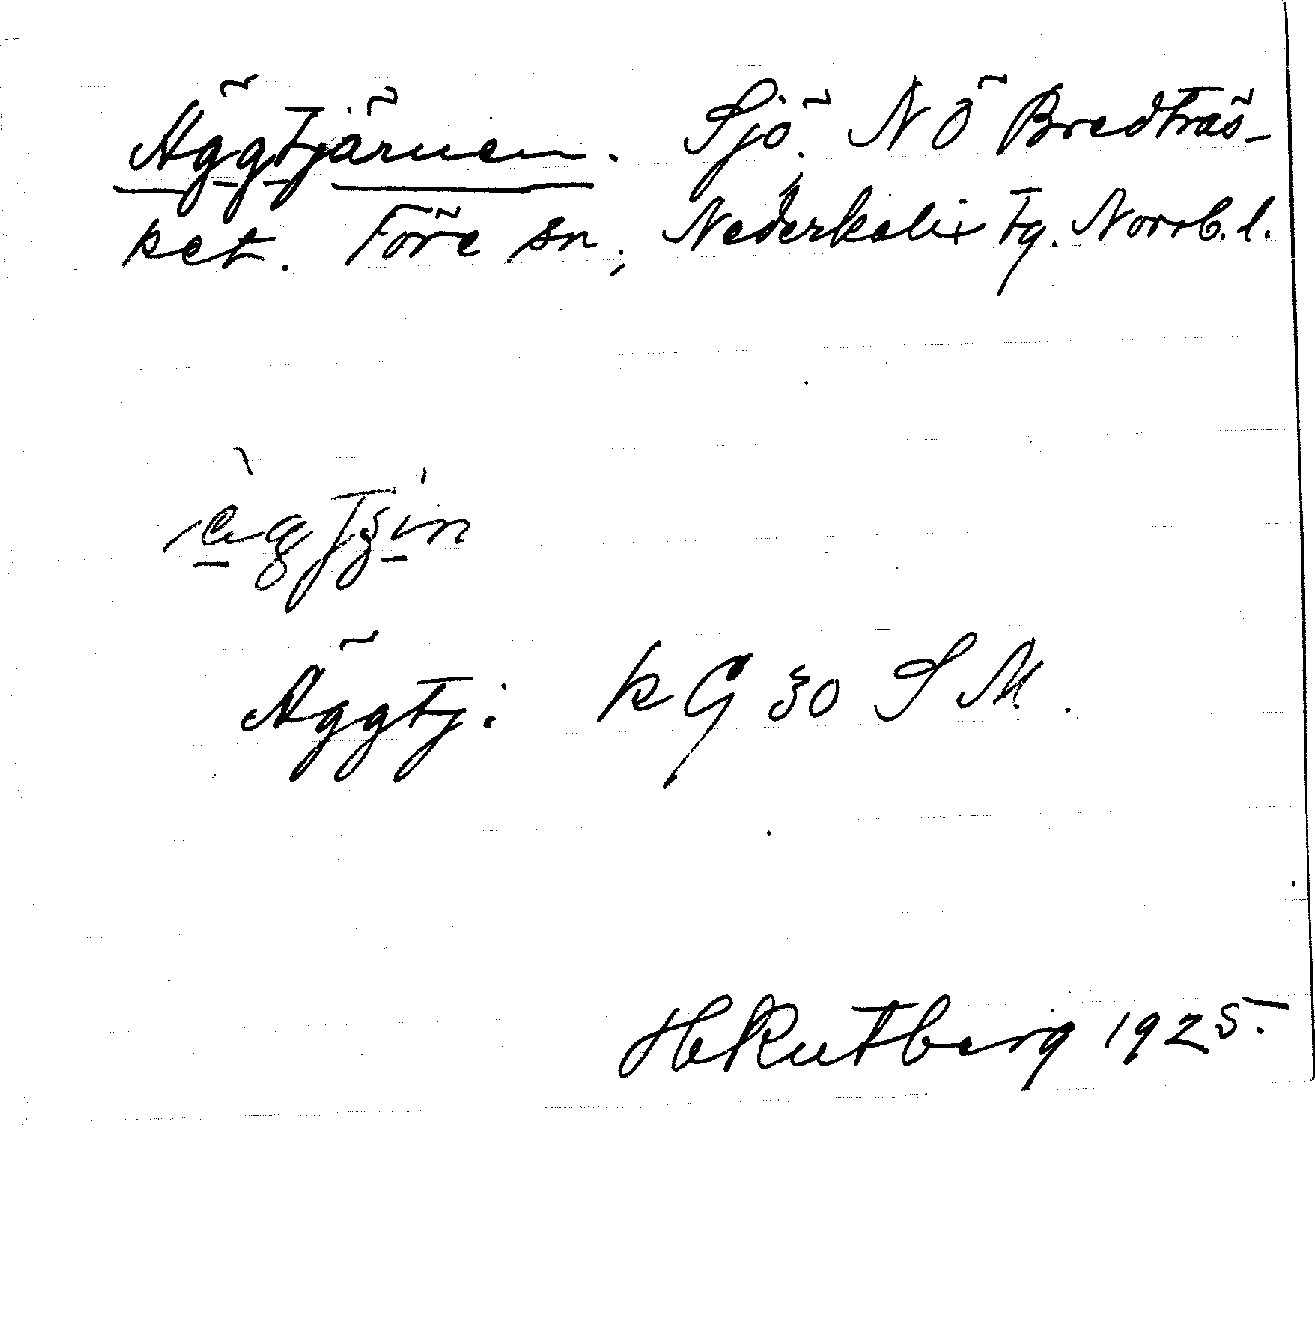 Äggtjärnen. Sjö. NÖ Bredträs-
ket. Töre sn, Nederkalix tg. Norrb. l.
Äggtj: k G 30 S M.
H Rutberg 1925.